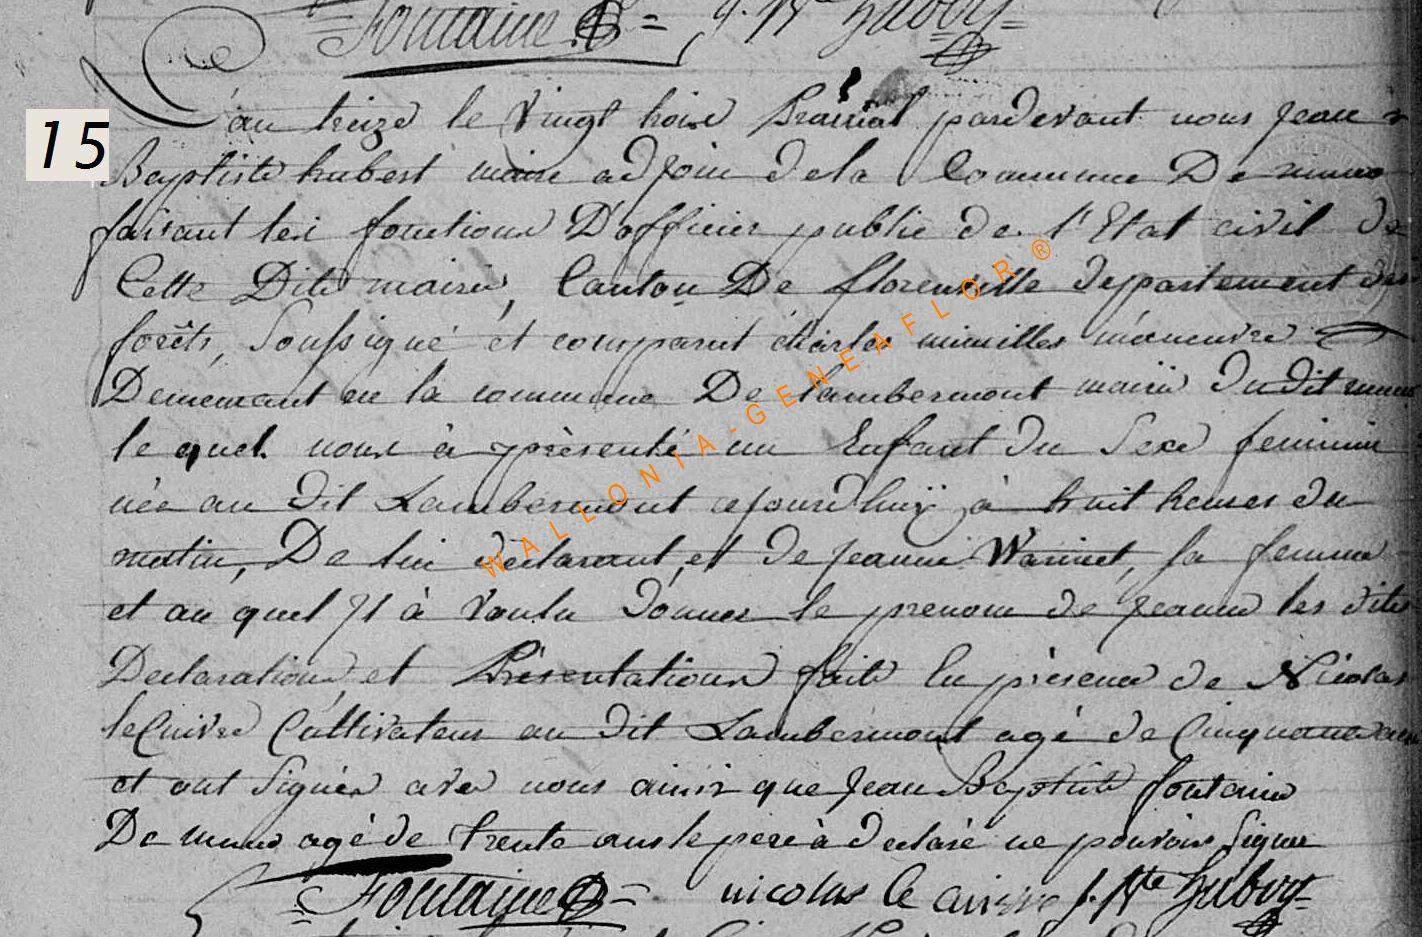 Fontaine = J. Bte Huboy =
15
L'an treize le Vingt trois Prairial pardevant nous Jean
Baptiste hubert maire adjoin de la Commune De muno
faisant les fonctions D'officier public de l'Etat civil de
Cette Dite mairie, Canton De florenville departement des
forêts, Soussigné et comparut charles manœuvre
Demeurant en la commune De lambermont mairie Du dit muno
le quel nous à présenté un Enfant Du Sexe feminin
née au dit Lambermont cejourdhuy à huit heures du
matin, De lui declarant et de Jeanne Warinet, sa femme
et au quel Jl à voulu Donner le prenom de Jeanne les dites
Declaration et Présentation faite En présence de Nicolas
le Cuivre Cultivateur au dit Lambermont agé de Cinquante ans
et ont Signés avec nous ainsi que Jean Baptiste fontaine
De muno agé de trente ans le pere à declaré ne pouvoir Signer
Fontaine = nicolas le cuivre J. Bte Huboy =
WALLONIA-GENEAFLOR®